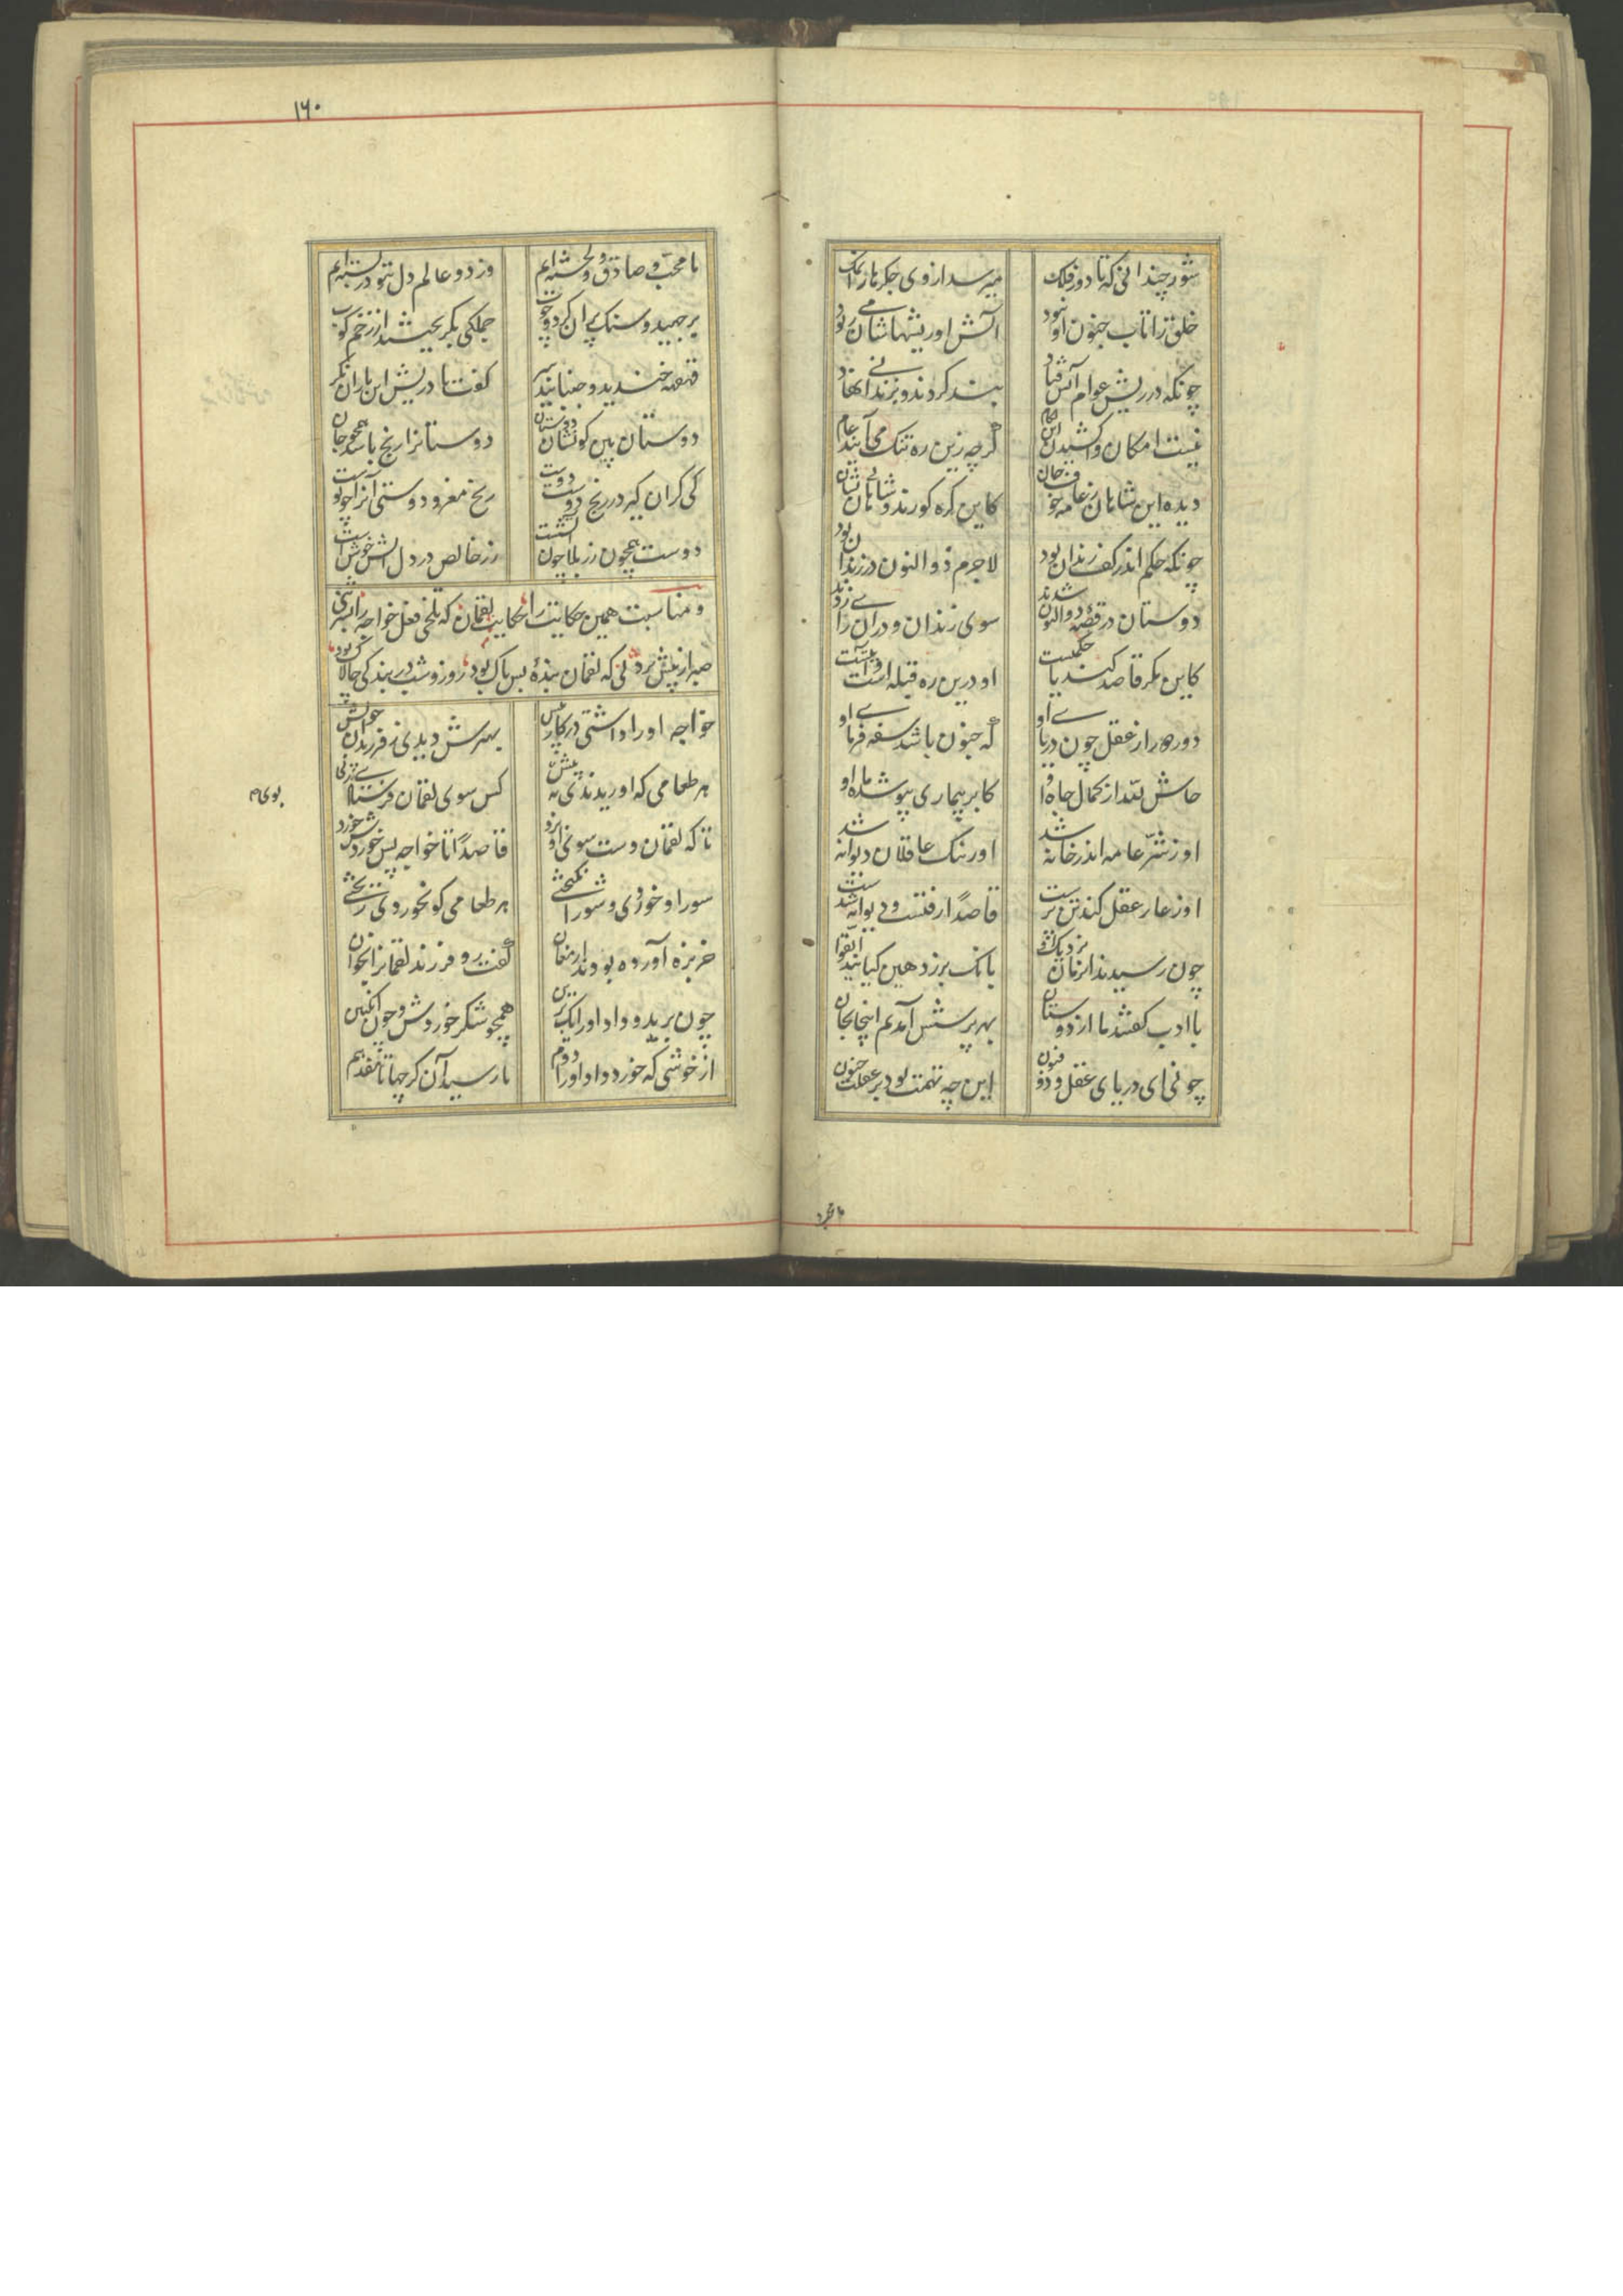 شور چندانی که تا دور فلک
میرسد از وی جکرها را نمک
خلق را تاب جنون او نبود
آتش او ریشهاشان می ربود
چونکه در ریش عوام آتش فتاد
بند کردند و بزندانی نهاد
نیست امکان واکشیدن این لکام
گرچه زین ره تنک می آیند عام
دیده این شاهان ز عامه خوف جان
کاین کره کورند و شاهان بی نشان
چونکه حکم اندر کف رندان بود
لاجرم ذوالنون در زندان بود
دوستان در قصهٔ ذوالنون شدند
سوی زندان و در آن رایی زدند
کاین مکر قاصد کند یا حکمتست
او درین ره قبله است و آیتست
دور دور از عقل چون دریای او
که جنون باشد سفه فرمای او
حاش لله از کمال جاه او
کابر بیماری بپوشد ماه او
او ز شرّ عامه اندر خانه شد
او ز ننک عاقلان دیوانه شد
او ز عار عقل کند تن پرست
قاصدًا رفتست و دیوانه شدست
چون رسیدند آنزمان نزدیک او
بانک بر زد هین کیانید اتّقوا
با ادب گفتند ما از دوستان
بهر پرسش آمدیم اینجا بجان
چونی ای دریای عقل ذو فنون
این چه تهمت بود بر عقلت جنون
۱۶۰
ما محبّ و صادق و دلخسته ایم
وز دو عالم دل بتو در بسته ایم
بر جهید و سنک پران کرد و چوب
جملکی بکریختند از زخم کوب
قهقهه خندید و جنبانید سر
کفت باد ریش این یاران نکر
دوستان بین کو نشان دوستان
دوستانرا رنج باشد همچو جان
کی کران کیرد ز رنج دوست دوست
رنج مغز و دوستی آنرا چو پوست
دوست همچون زر بلا چون آتشست
زر خالص در دل آتش خوش است
و مناسبت همین حکایت را حکایت لقمان که تلخی فعل خواجه را بشیرینی
صبر از پیش برد نی که لقمان بندهٔ بس پاک بود روز و شب در بندکی چالاک بود
خواجه او را داشتی در کار پیش
بهترش دیدی ز فرزندان خویش
هر طعامی که اوریدندی به پیش
کس سوی لقمان فرستادی ز پی
بوی م
تا که لقمان دست سوی او برد
قاصدًا تا خواجه پس خوردش خورد
سور او خوردی و شور انکیختی
هر طعامی کو نخوردی ریختی
خربزه آورده بودند ارمغان
گفت رو فرزند لقمانرا بخوان
چون برید و داد او را یک برین
همچو شکر خوردش و چون انکبین
از خوشی که خورد داد او را دوم
تا رسید آن کرجها تا هفدهم
ما محب و